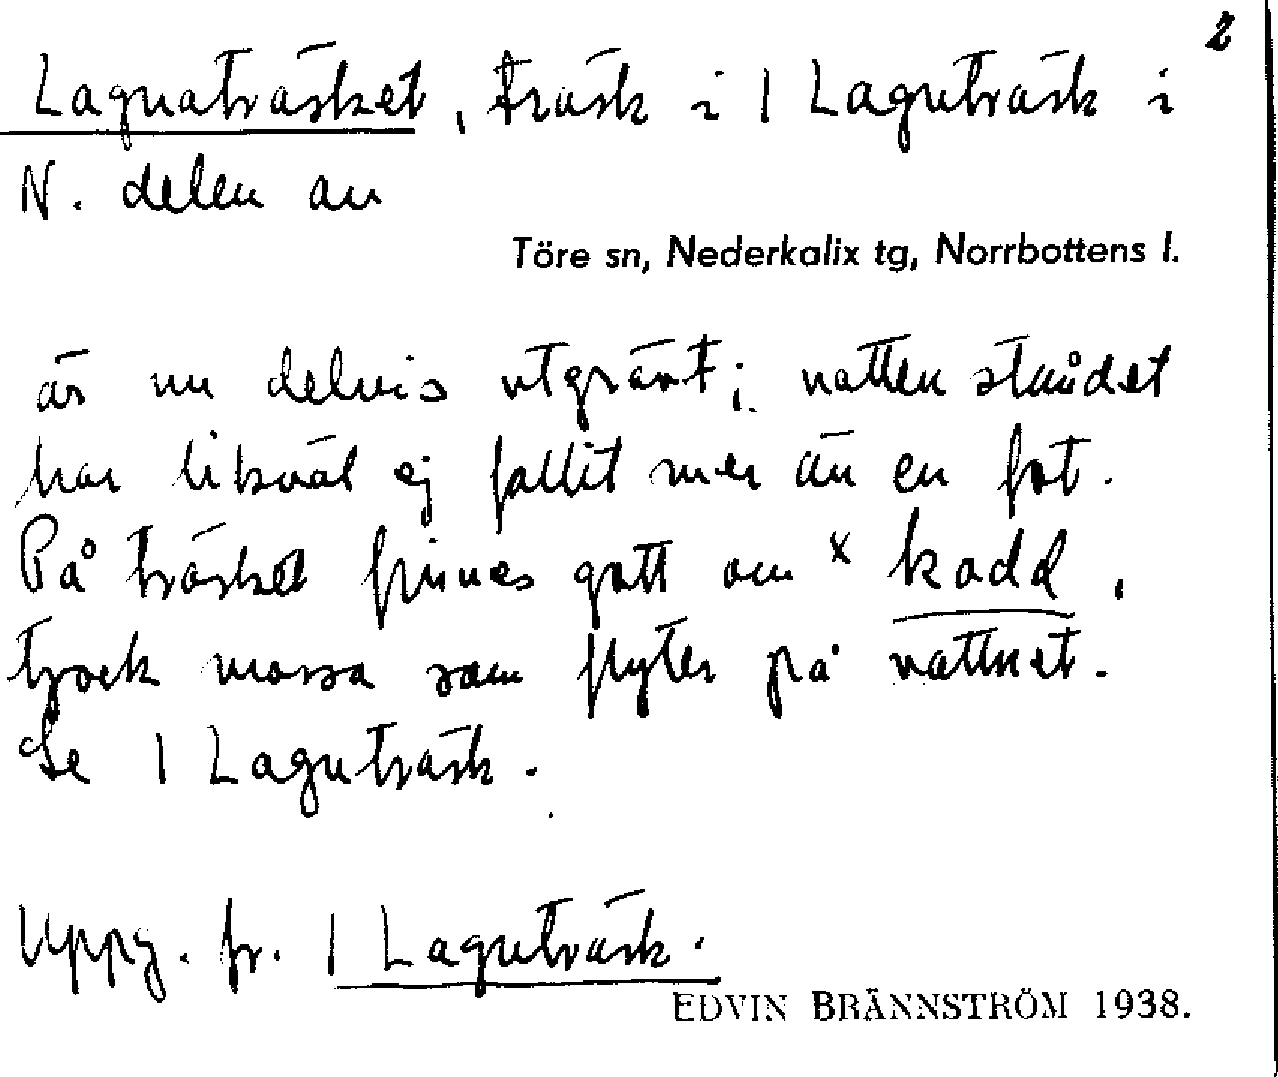 2
Lagnaträsket, träsk i 1 Lagnträsk i
N. delen av
Töre sn, Nederkalix tg, Norrbottens l.
är nu delvis utgrävt; vattenståndet
har likväl ej fallit mer än en fot.
På träsket finnes gott om x kadd,
tjock mossa som flyter på vattnet.
Se 1 Lagnträsk.
Uppg. fr. 1 Lagnträsk.
EDVIN BRÄNNSTRÖM 1938.